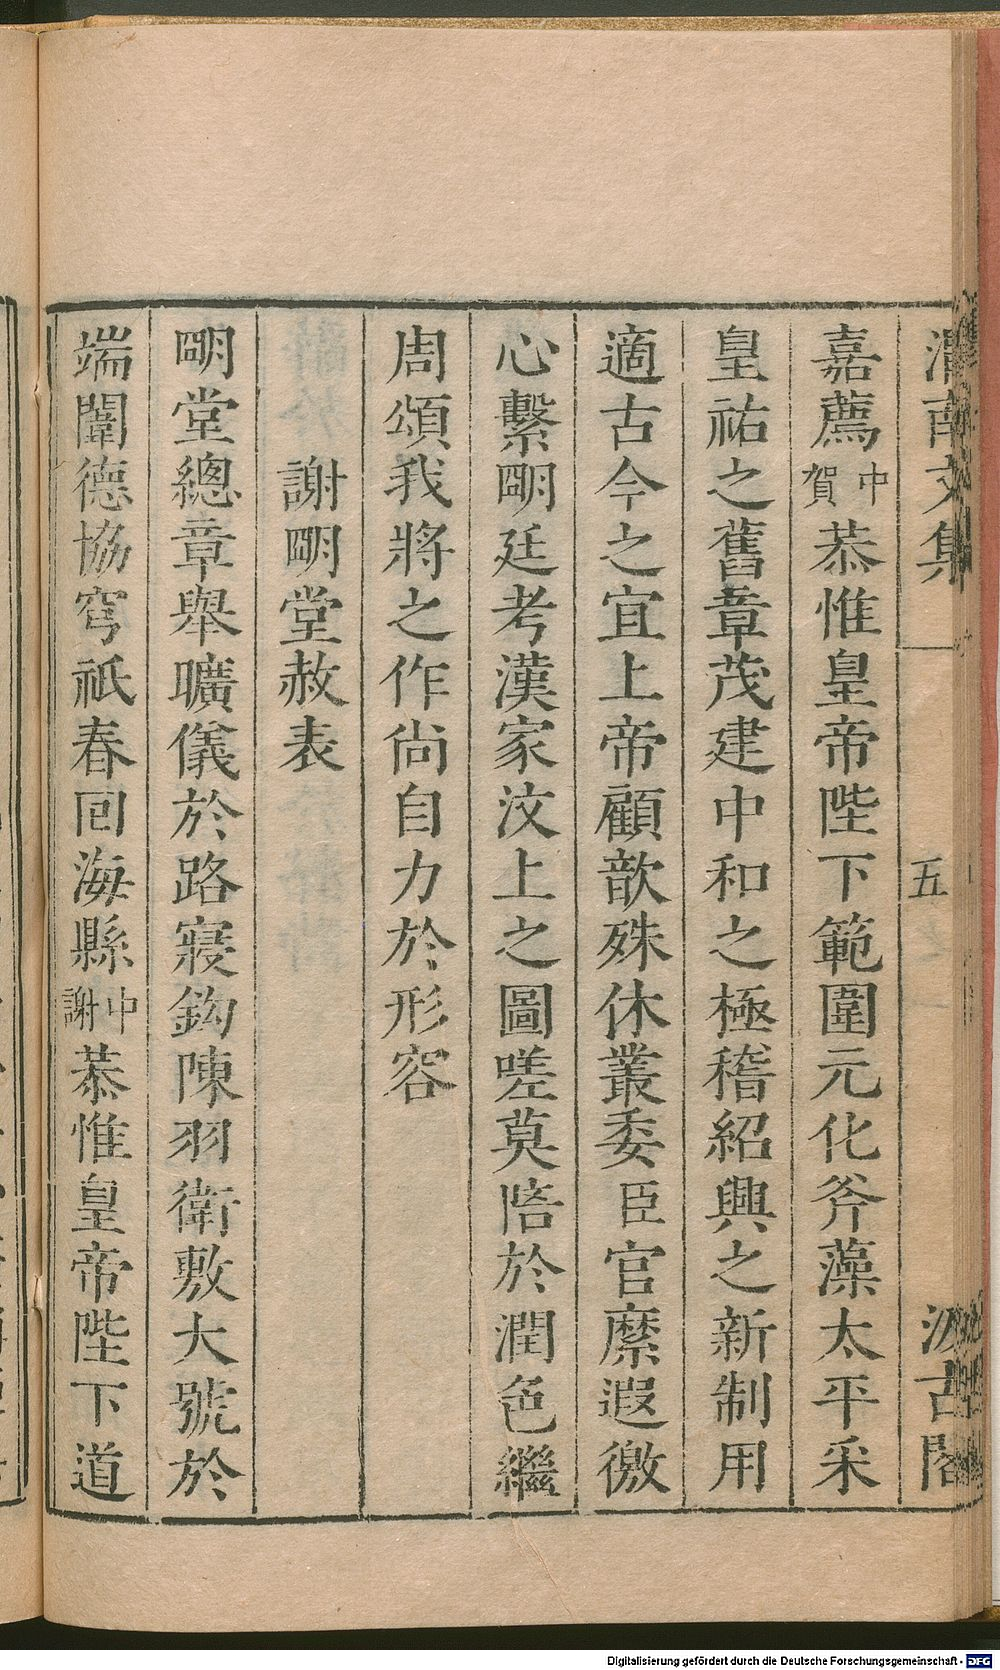 渭南文集 五 汲古閣
嘉薦中賀恭惟皇帝陛下範圍元化斧藻太平采
皇祐之舊章茂建中和之極稽紹興之新制用
適古今之宜上帝顧歆殊休叢委臣官縻遐徼
心繫朙廷考漢家汶上之圖嗟莫陪於潤色繼
周頌我將之作尚自力於形容
謝朙堂赦表
朙堂總章舉曠儀於路寢鈎陳羽衛敷大號於
端闈德協穹祇春回海縣中謝恭惟皇帝陛下道
Digitalisierung gefördert durch die Deutsche Forschungsgemeinschaft - DFG